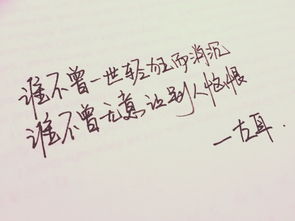 谁不曾一世轻狂而消沉
谁不曾无意让别人怀恨
一古耳.